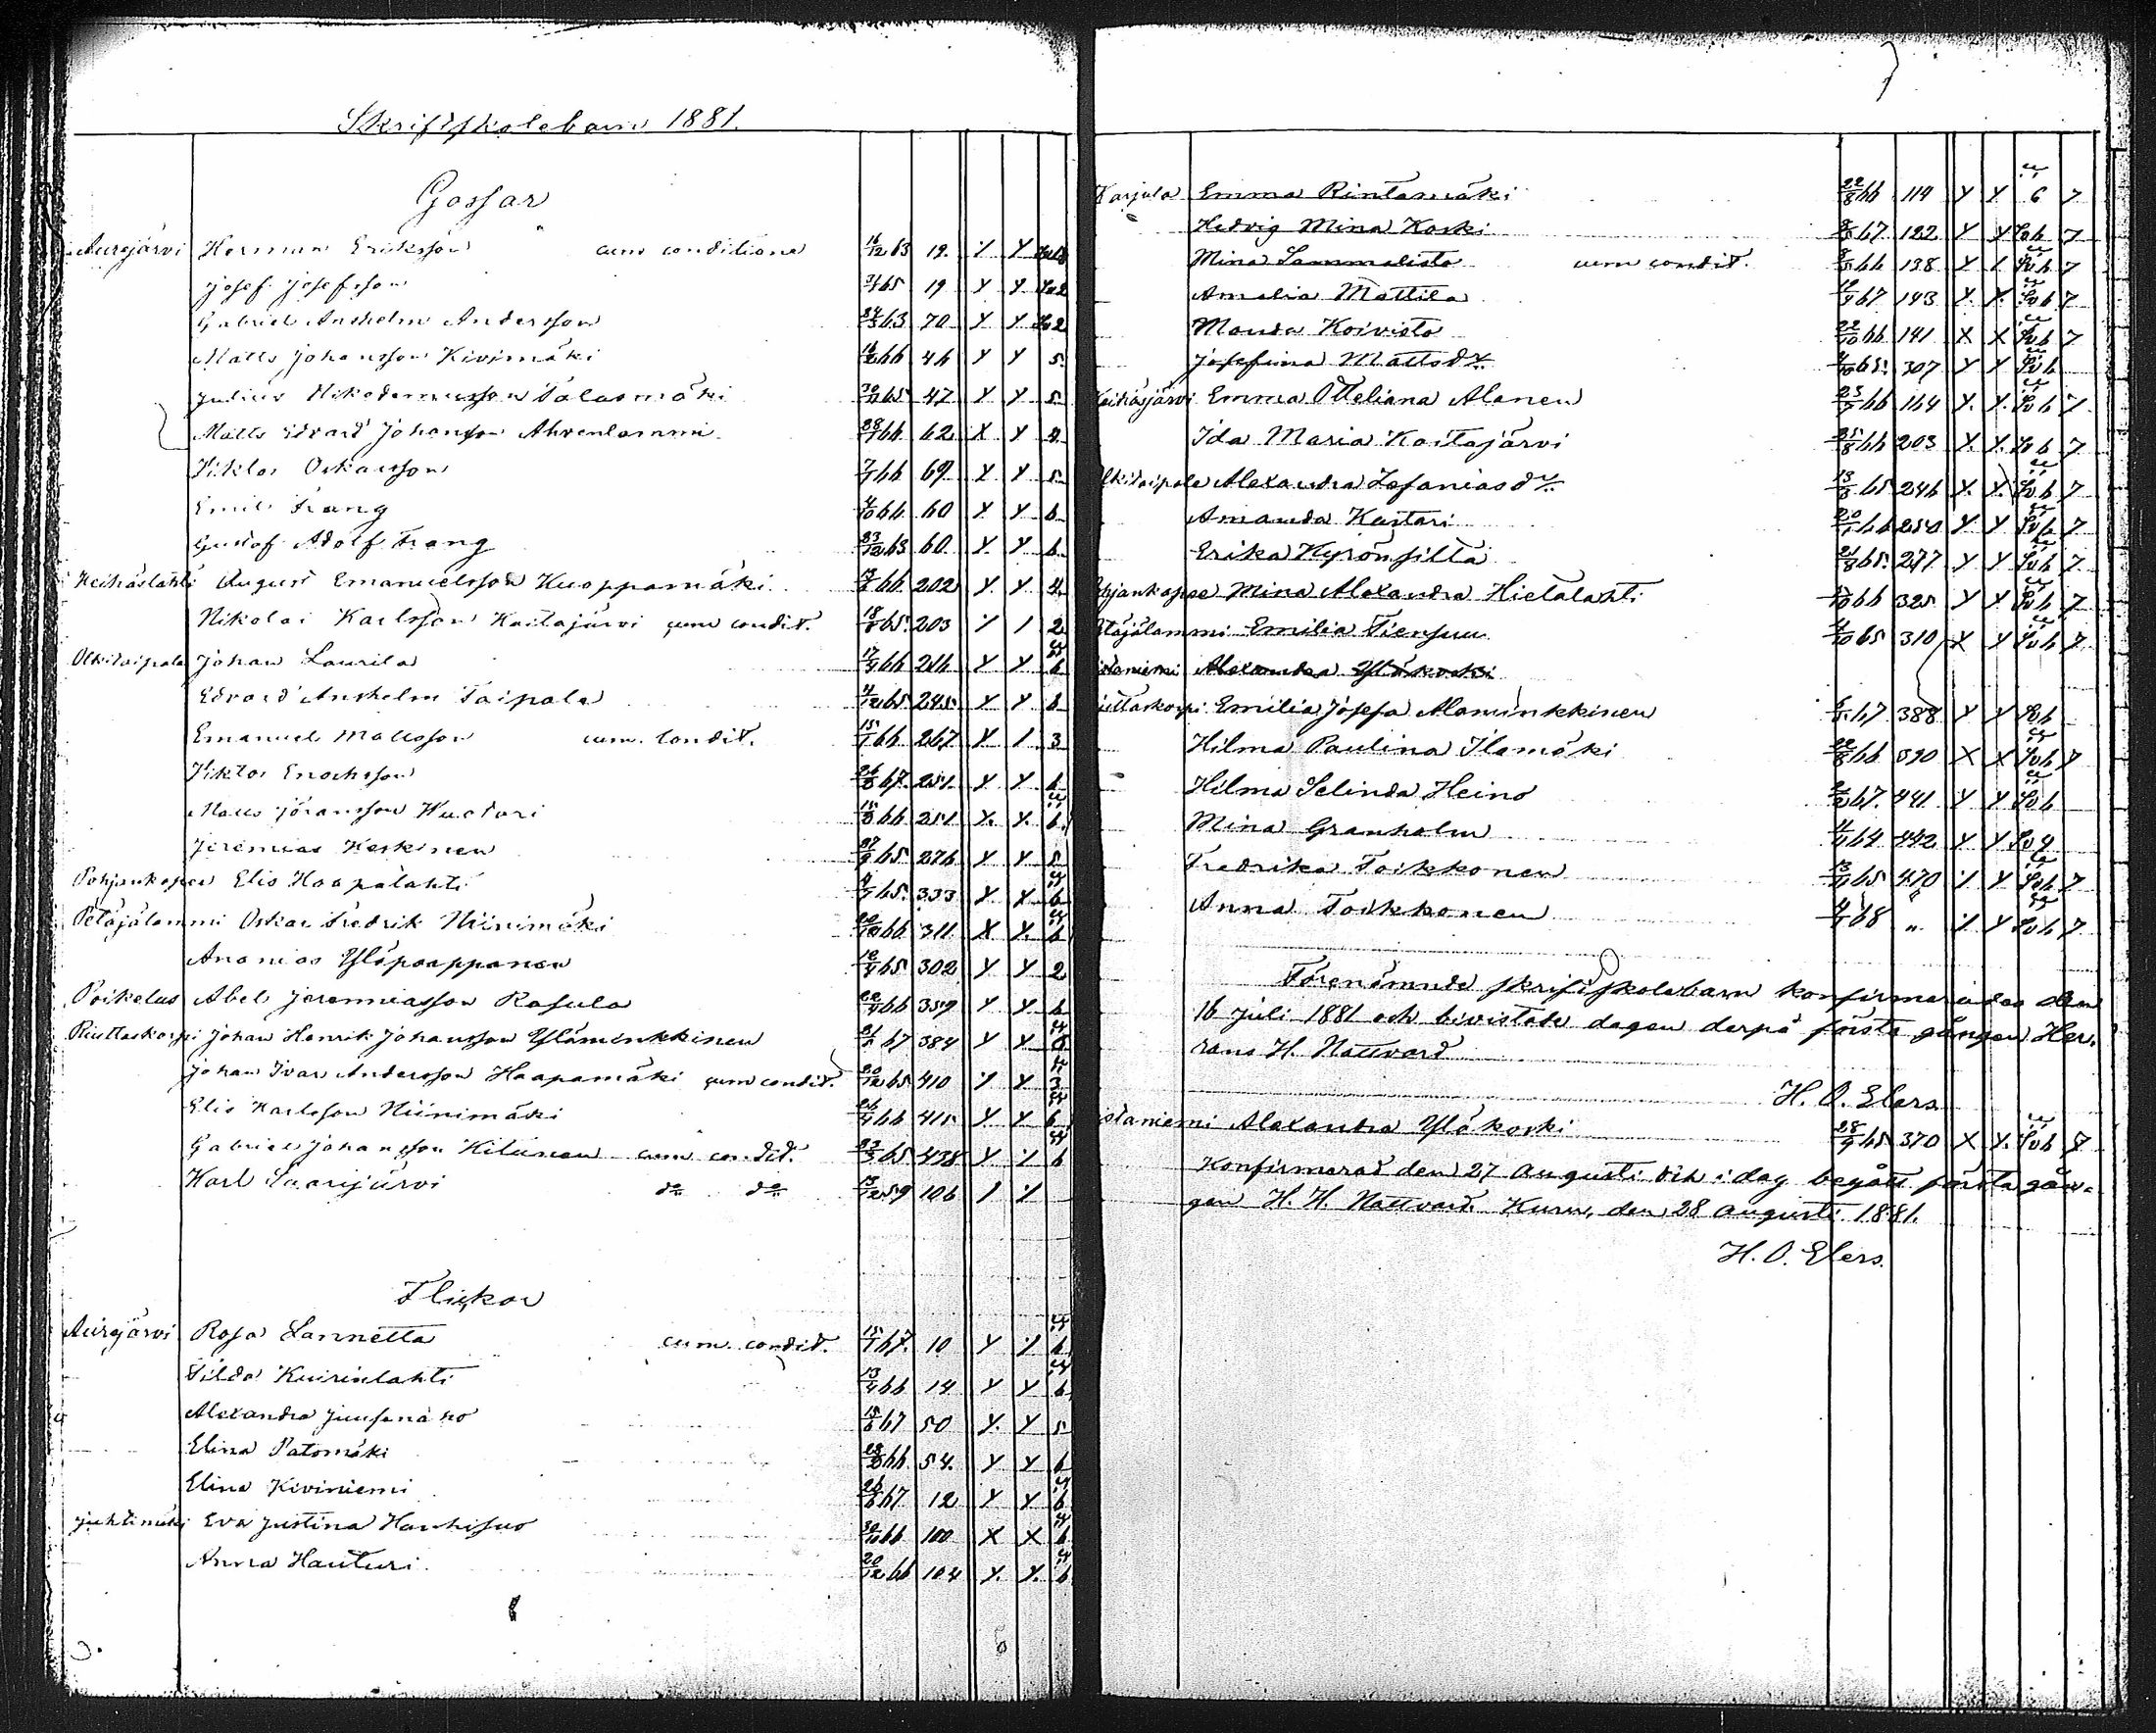 Skriftskolebarn 1881.
Gossar
Aurejärvi Herman Eriksson cum conditione 16/12 63 19. Y Y
Josef Josefsson 65 19 Y Y
Gabriel Anshelm Andersson 63 70 Y Y
Matts Johansson Kivimäki 66 46 Y Y 5.
Julius Nikodemusson Palasmäki 65 47 Y Y 5
Matts Edvard Johansson Ahvenlammi 28/1 66 62 X Y
Viktor Oskarsson 7/1 66 69 Y Y 5
Emil Frang 4/10 66 60 Y Y 6
Gustaf Adolf Frang 23/12 63 60. Y. Y 6
Keihäslahti August Emanuelsson Kuoppamäki 66 202 Y. Y. 4
Nikolai Karlsson Kaitajärvi cum condit. 65. 203 / / 2
Olkitaipale Johan Laurila 66 246 Y Y 6
Edvard Anshelm Taipale 4/12 65 245 Y Y
Emanuel Mattsson cum. condit. 15/1 66 267 Y / 3
Viktor Enochsson 67. 251. Y Y 6
Matts Jöransson Kustari 66 251 Y. Y. 6.
Jeremias Keskinen 65 276 Y Y 5
Pohjankapee Elis Haapalahti 65. 333 Y X 6
Petäjälammi Oskar Fredrik Niinimäki 66 311. X Y. 6
Ananias Yläpaappanen 65 302 Y Y 2
Poikelus Abel Jeremiasson Rasula 66 359 Y Y 6
Riuttaskorpi Johan Henrik Johansson Yläminkkinen 67 384 Y Y 6
Johan Ivar Andersson Haapamäki cum condit. 20/12 65 410 Y Y 3
Elis Karlsson Niinimäki 66 415 Y Y 6
Gabriel Johansson Kiliunen cum condit. 23/3 65 438 Y / 6
Karl Saarijärvi do do 13/12 59 106 / /
Flickor
Aurejärvi Rosa Lannetta cum. condit. 15/1 67. 10 Y / 6
Tilda Kuirinlahti 13/4 66 14 Y Y 6
Alexandra Juusenaho 15/6 67 50 Y. Y 5
Elina Patomäki 66 54. Y Y 6
Elina Kiviniemi 67 12 Y Y 6
Juhtimäki Eva Justina Hauhisuo 30/10 66 100 X X 6
Anna Hauturi 20/12 66 104 Y. Y. 6
7
Karjula Emma Rintamäki 22/8 66 114 Y Y 6 7
Hedvig Mina Koski 67. 122 Y Y 7
Mina Sammalisto cum condit. 66 138 Y / 7
Amalia Mattila 67. 143 Y. Y. 7
Manda Koivisto 22/10 66 141 X X 7
Josefina Mattsdr 4/10 65. 307 Y Y
Emma Otteliana Alanen 25/7 66 164 Y. Y. 7
Ida Maria Kaitajärvi 66 203 Y. Y. 7
Alexandra Zefaniasdr 65 246 Y. Y. 7
Amanda Kustari 20/1 66 250 Y Y 7
Erika Kyrönsilta 21/8 65. 277 Y Y 7
Mina Alexandra Hietalahti 66 325 Y Y 7
Emilia Tiensuu 4/10 65 310 X Y 7
Alexandra Yläkoski
Emilia Josefa Alaminkkinen 67 388 Y Y
Hilma Paulina Ilamäki 22/8 66 390 X X 7
Hilma Selinda Heino 67. 441 Y Y
Mina Granholm 64 442 Y Y
Fredrika Toikkonen 65 470 / Y 7
Anna Toikkonen 68 " / Y 7
Förenämnde skriftskolebarn konfirmerades den
16 Juli 1881 och bivistade dagen derpå första gången Her-
rans H. Nattvard
H. O. Elers
Alexandra Yläkoski 28/9 65 370 X Y. 7
Konfirmerad den 27 Augusti och i dag begått första gån-
gen H. H. Nattvard. Kuru, den 28 Augusti 1881.
H. O. Elers.